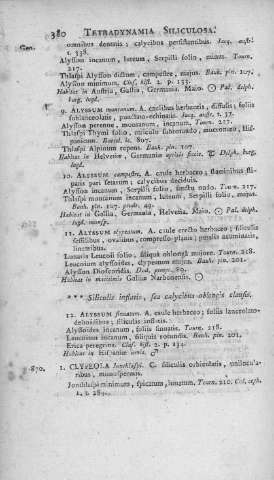 380 TETRADYNAMIA SILICULOSA.
omnibus dentatis ; calycibus persistentibus. Jacq. austr.
t. 338.
Alysson incanum, luteum, Serpilli folio, minus. Tourn.
217.
Thlaspi Alysson dictum, campestre, majus. Bauh. pin. 107.
Alysson minimum. Clus. hist. 2. p. 133.
Habitat in Austria, Gallia, Germania. Maio. ☉ Pal. delph.
burg. lugd.
9. ALYSSUM montanum. A. caulibus herbaceis, diffusis ; foliis
sublanceolatis, punctato-echinatis. Jacq. austr. t. 37.
Alysson perenne, montanum, incanum. Tourn. 217.
Thlaspi Thymi folio,
Thlaspi Alpinum repens. Bauh. pin. 107.
Habitat in Helvetiæ, Germaniæ
10. ALYSSUM campestre, A. caule herbaceo ; staminibus sti-
patis pari setarum ; calycibus deciduis.
Alysson incanum, Serpilli folio, fructu nudo. Tourn. 217.
Thlaspi montanum incanum, luteum, Serpilli folio, majus.
Bauh. pin. 107. prodr. 49.
Habitat in Gallia, Germania, Helvetia. Maio. ☉ Pal. delph.
lugd. monsp.
11. ALYSSUM clypeatum. A. caule erecto herbaceo ; siliculis
sessilibus, ovalibus, compresso-planis ; petalis acuminatis,
linearibus.
Lunaria Leucoii folio, siliqua oblonga majore. Tourn. 218.
Leucoium alyssoides, clypeatum majus. Bauh. pin. 201.
Alysson Dioscoridis. Dod. pempt. 89.
Habitat in maritimis Galliæ Narbonensis. ☉
*** Siliculis inflatis, seu calycibus oblongis clausis.
12. ALYSSUM sinuatum. A. caule herbaceo ; foliis lanceolato-
deltoidibus ; siliculis inflatis.
Alyssoides incanum, foliis sinuatis. Tourn. 218.
Leucoium incanum, siliquis rotundis. Bauh. pin. 201.
Eruca peregrina. Clus. hist. 2. p. 134.
Habitat in Hispaniæ
870. 1. CLYPEOLA Jonthlaspi. C. siliculis orbiculatis, unilocula-
ribus, monospermis.
Jonthlaspi minimum, spicatum, lunatum. Tourn. 210. Col. ecph.
1. t. 284.